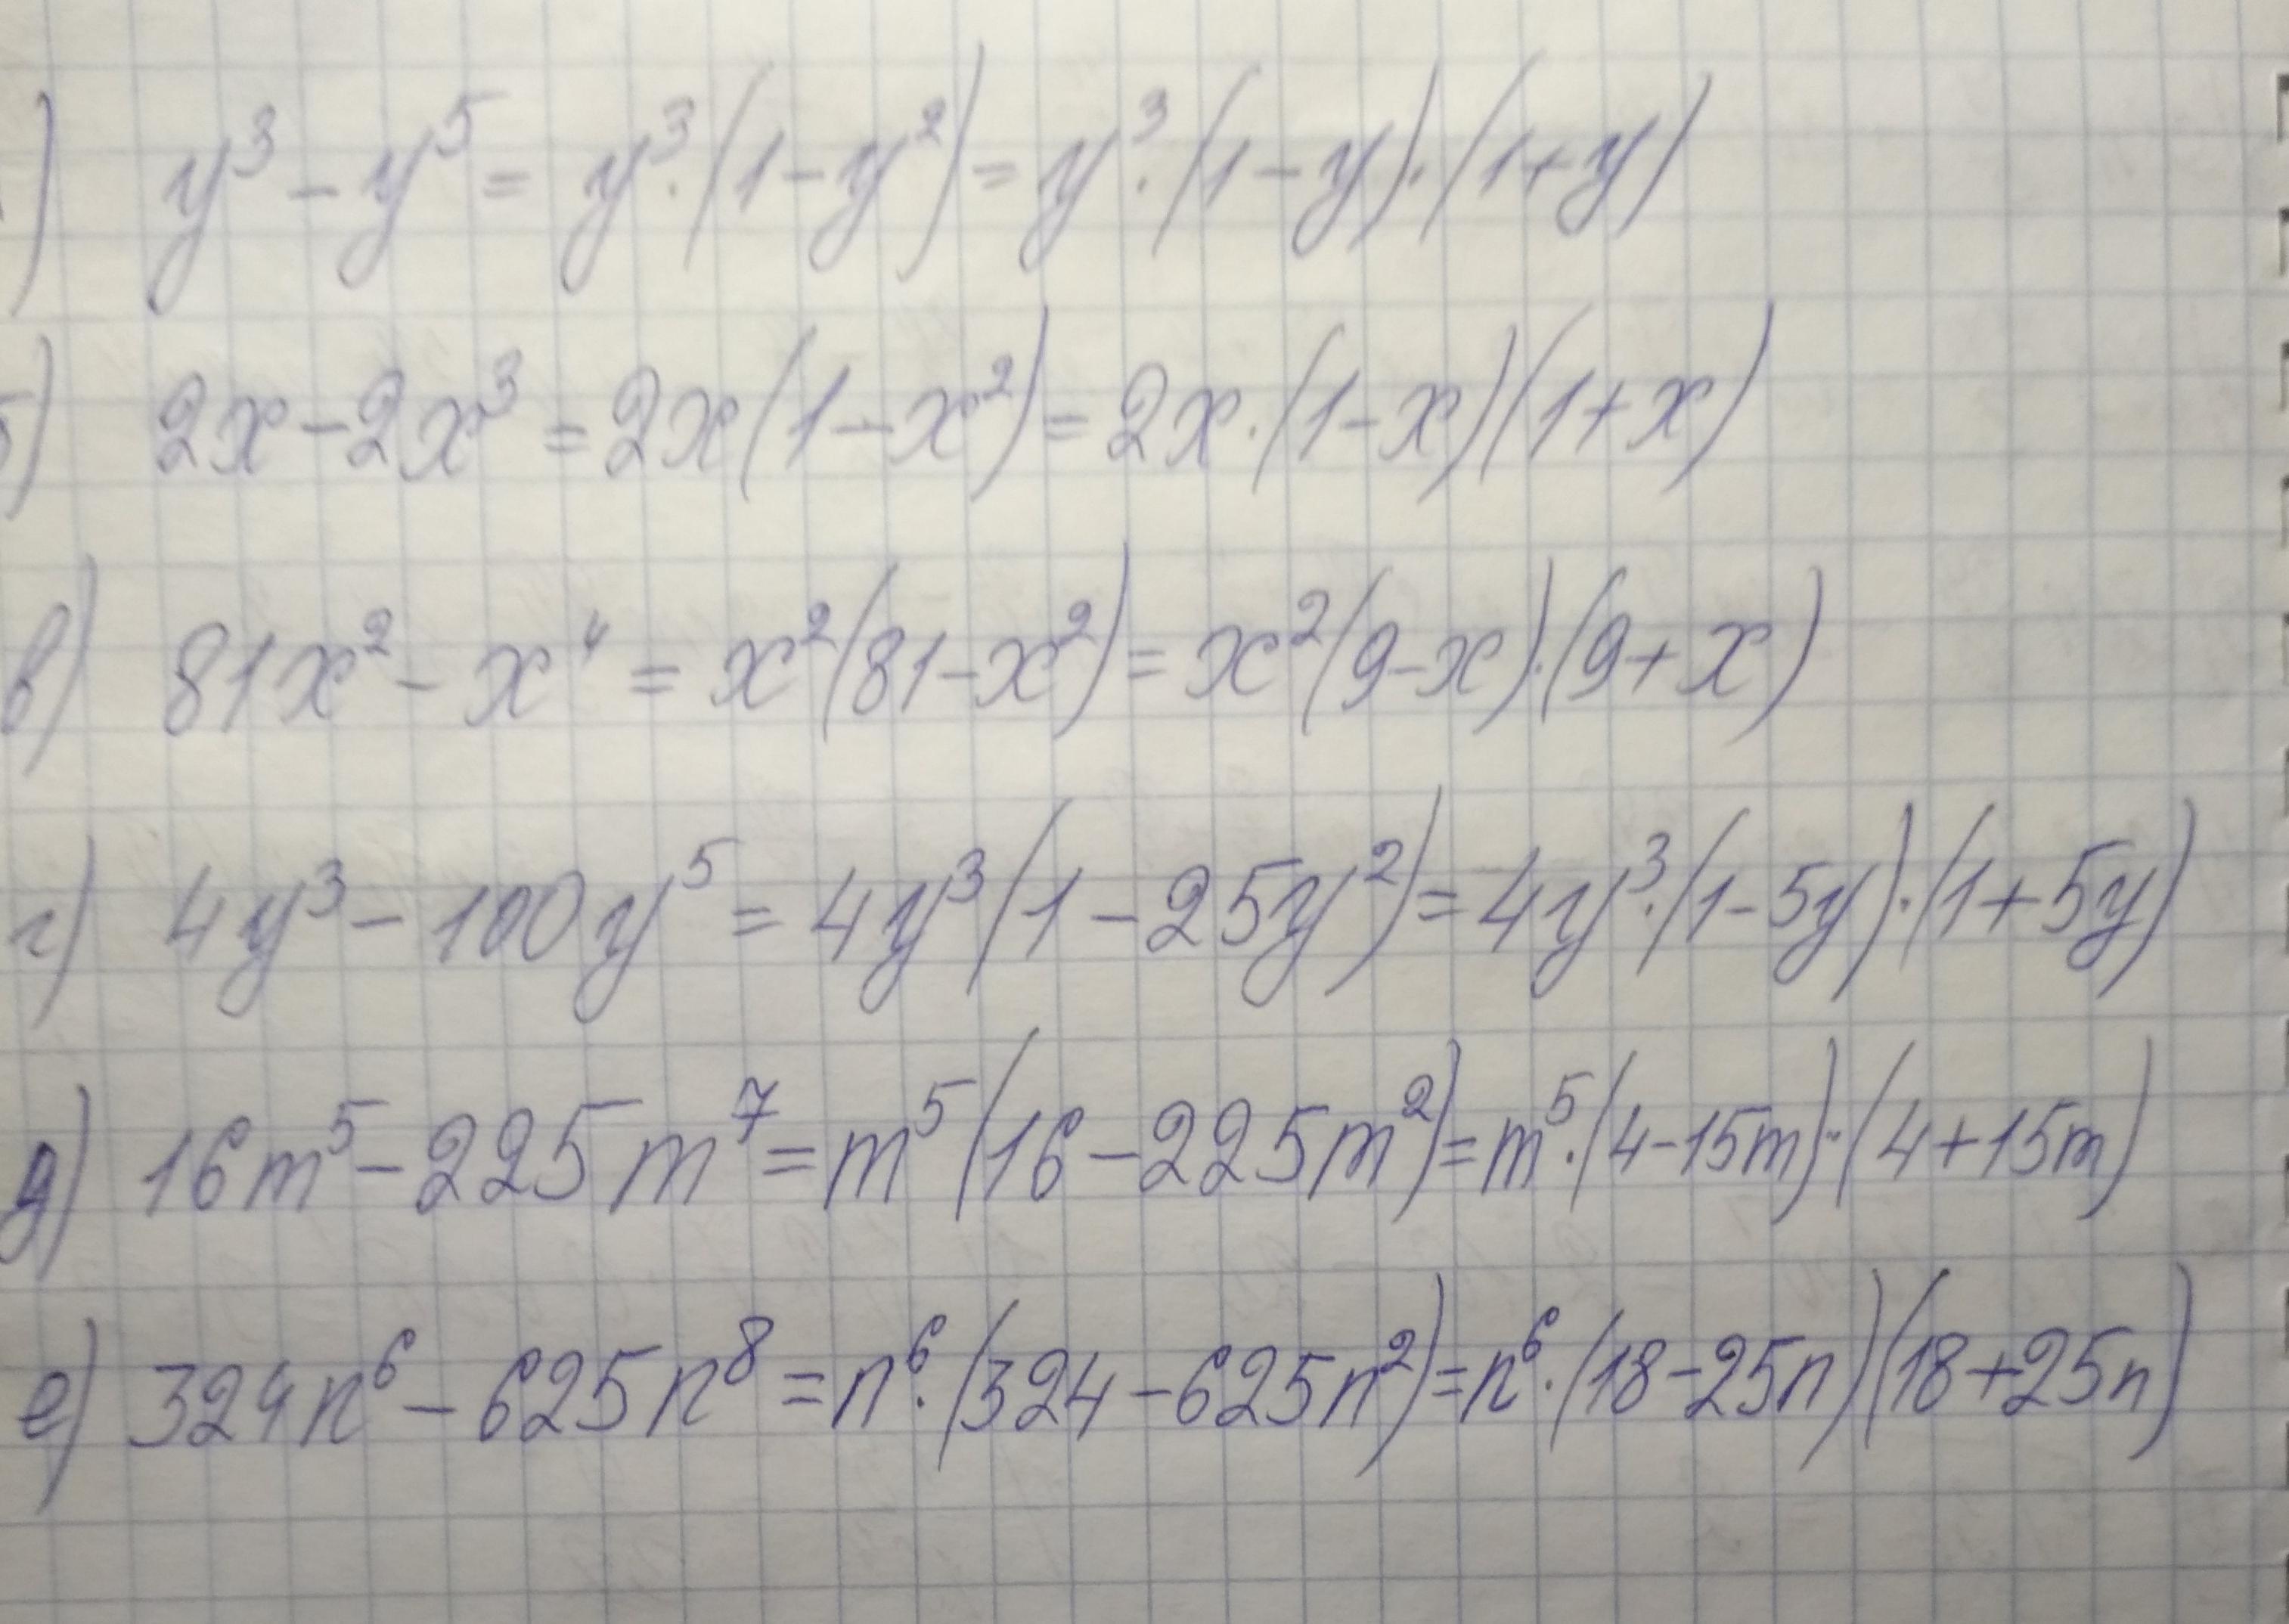 ) y³ - y⁵ = y³·(1-y²) = y³·(1-y)·(1+y)
б) 2x - 2x³ = 2x(1-x²) = 2x·(1-x)(1+x)
в) 81x² - x⁴ = x²(81-x²) = x²(9-x)·(9+x)
г) 4y³ - 100y⁵ = 4y³(1-25y²) = 4y³·(1-5y)·(1+5y)
д) 16m⁵ - 225m⁷ = m⁵(16-225m²) = m⁵·(4-15m)·(4+15m)
е) 324n⁶ - 625n⁸ = n⁶·(324-625n²) = n⁶·(18-25n)(18+25n)